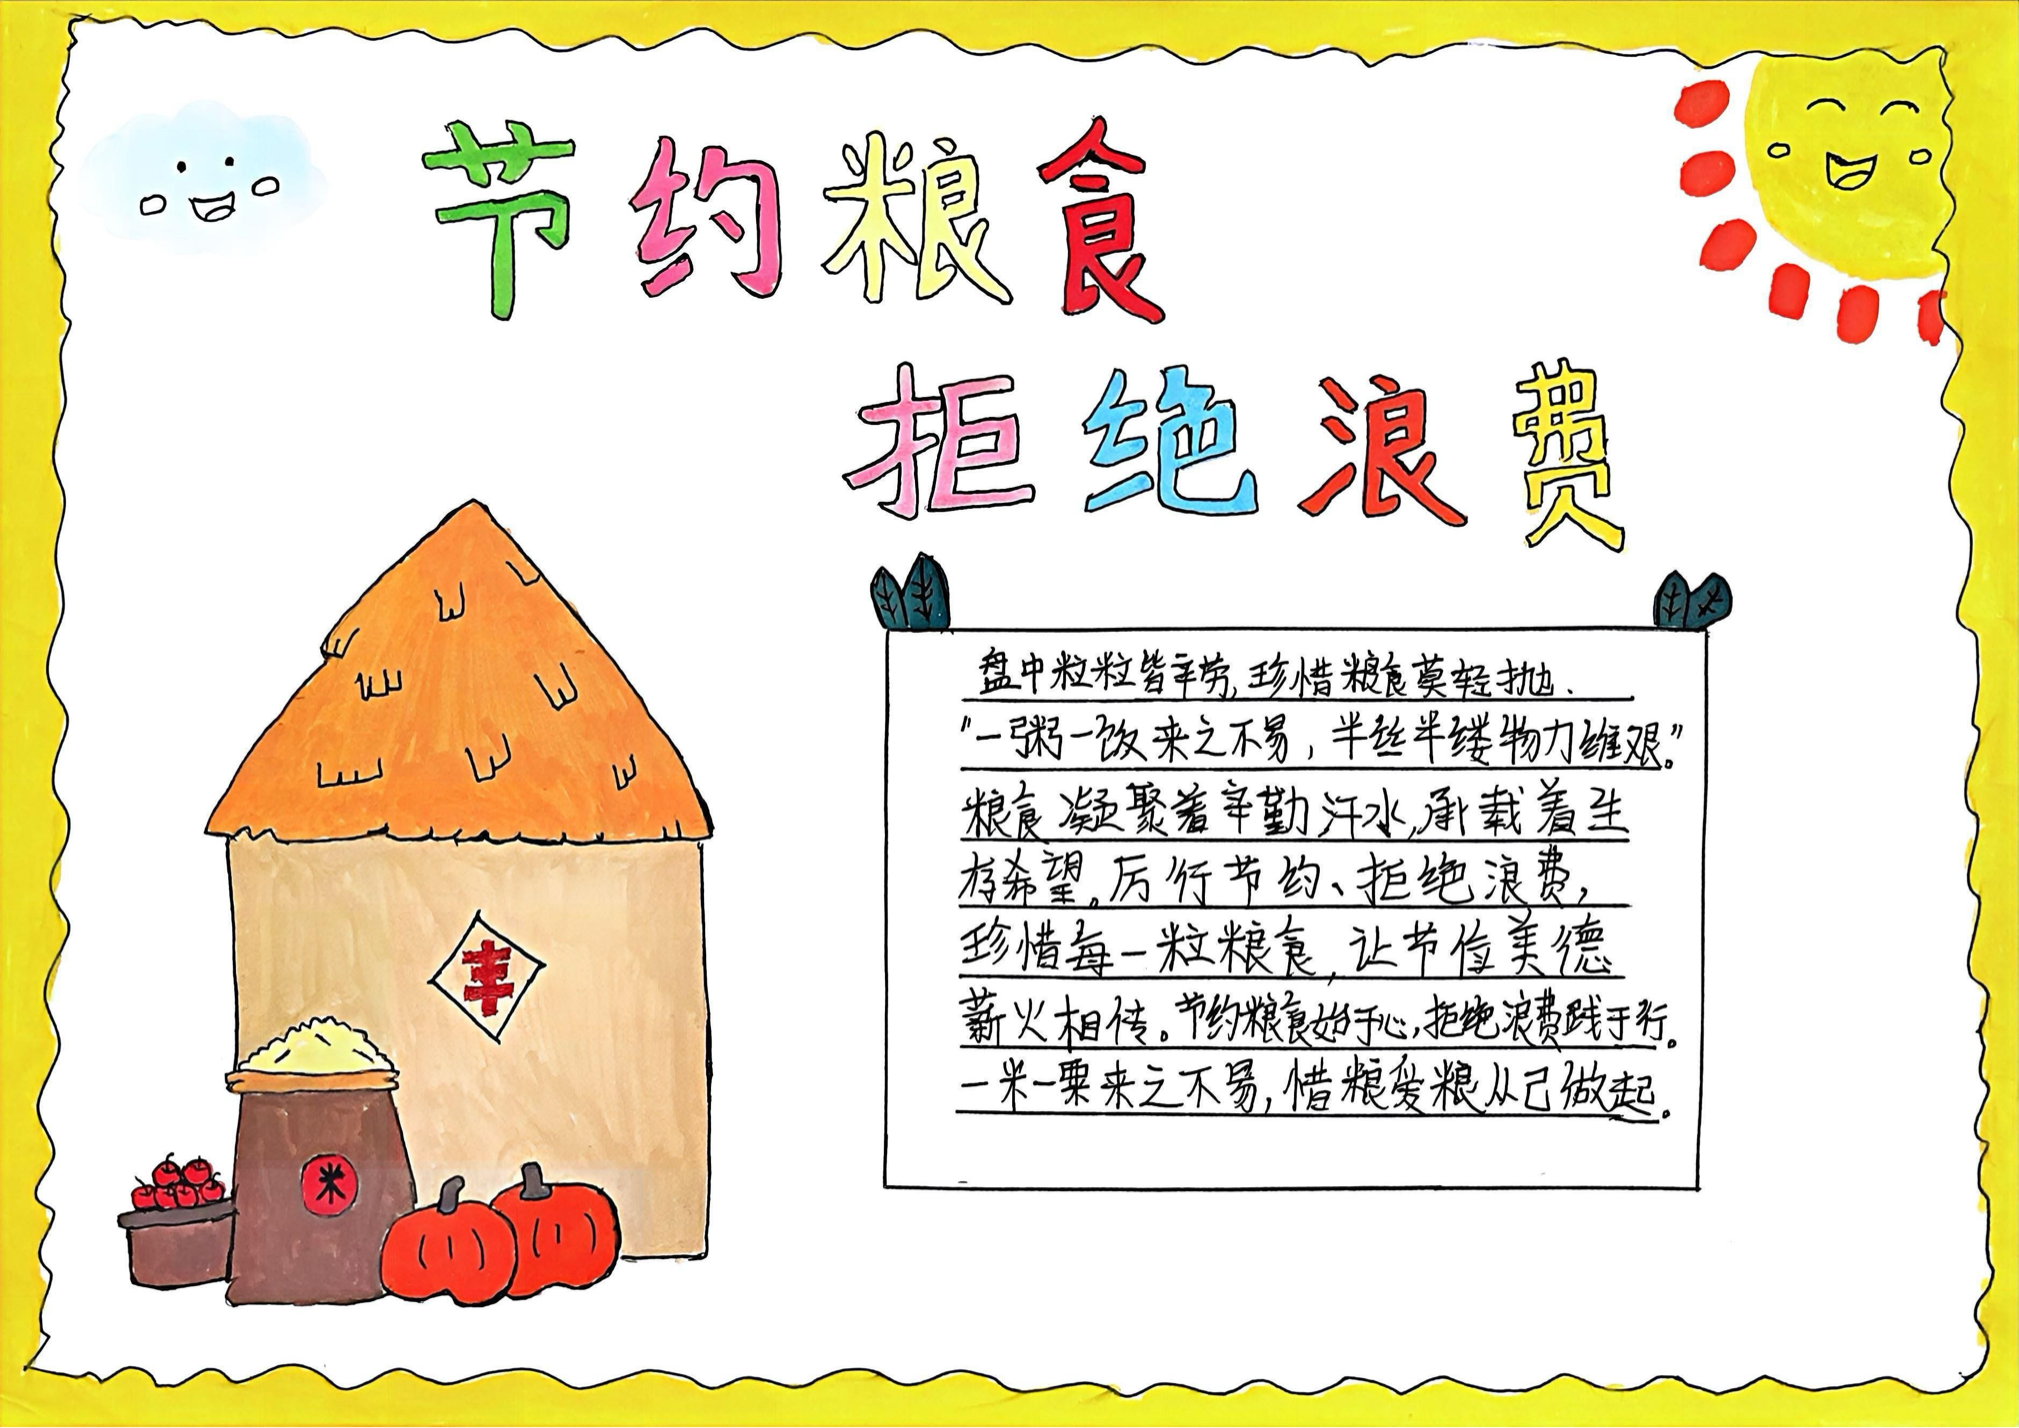 节约粮食
拒绝浪费
盘中粒粒皆辛劳,珍惜粮食莫轻抛、
“一粥一饭来之不易，半丝半缕物力维艰”。
粮食凝聚着辛勤汗水,承载着生
存希望。厉行节约、拒绝浪费，
珍惜每一粒粮食,让节俭美德
薪火相传。节约粮食始于心,拒绝浪费践于行。
一米一粟来之不易,惜粮爱粮从己做起。
丰
米